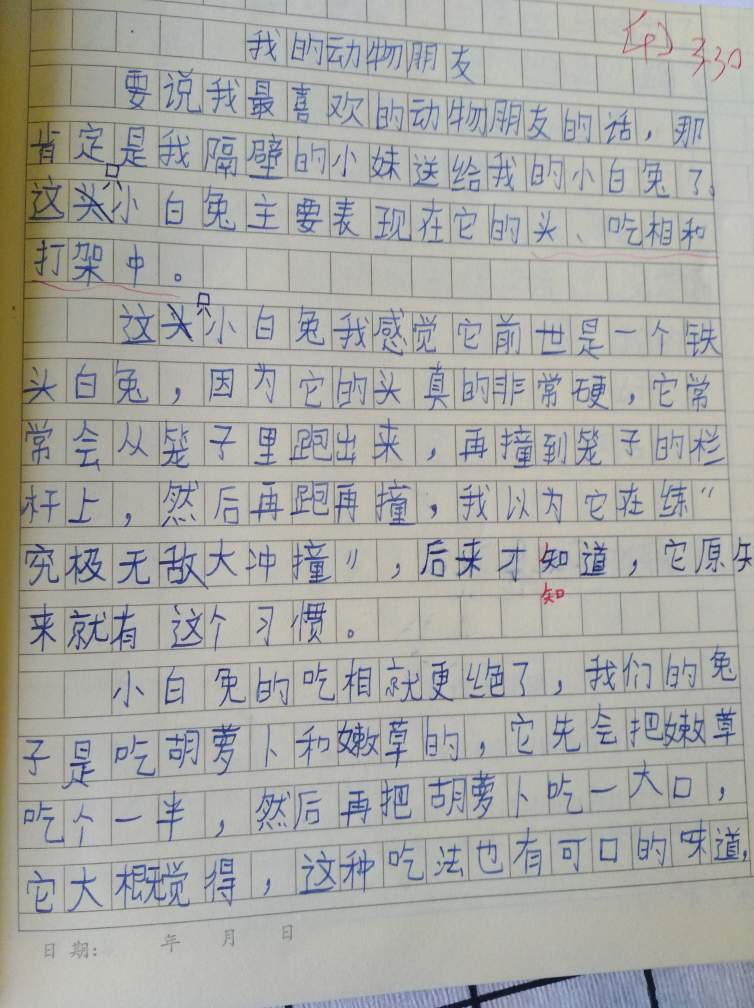 我的动物朋友
330
要说我最喜欢的动物朋友的话，那
肯定是我隔壁的小妹送给我的小白兔了，
这头小白兔主要表现在它的头、吃相和
打架中。
这头小白兔我感觉它前世是一个铁
头白兔，因为它的头真的非常硬，它常
常会从笼子里跑出来，再撞到笼子的栏
杆上，然后再跑再撞，我以为它在练“
究极无敌大冲撞”，后来才知道，它原
知
来就有这个习惯。
小白兔的吃相就更绝了，我们的兔
子是吃胡萝卜和嫩草的，它先会把嫩草
吃个一半，然后再把胡萝卜吃一大口，
它大概觉得，这种吃法也有可口的味道，
日期： 年 月 日